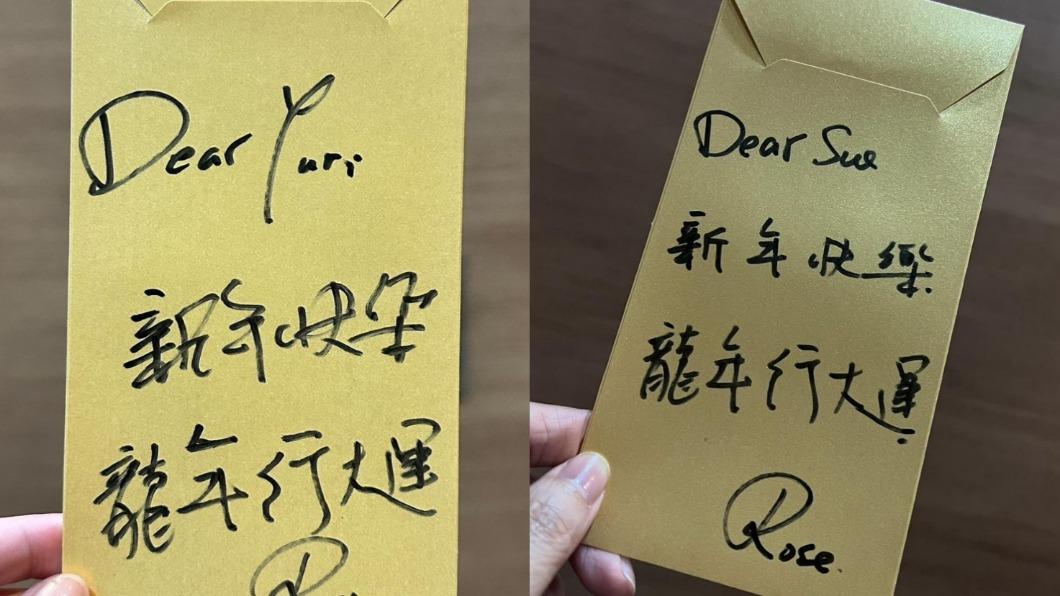 Dear Yuri
新年快樂
龍年行大運
Dear Sue
新年快樂
龍年行大運
Rose